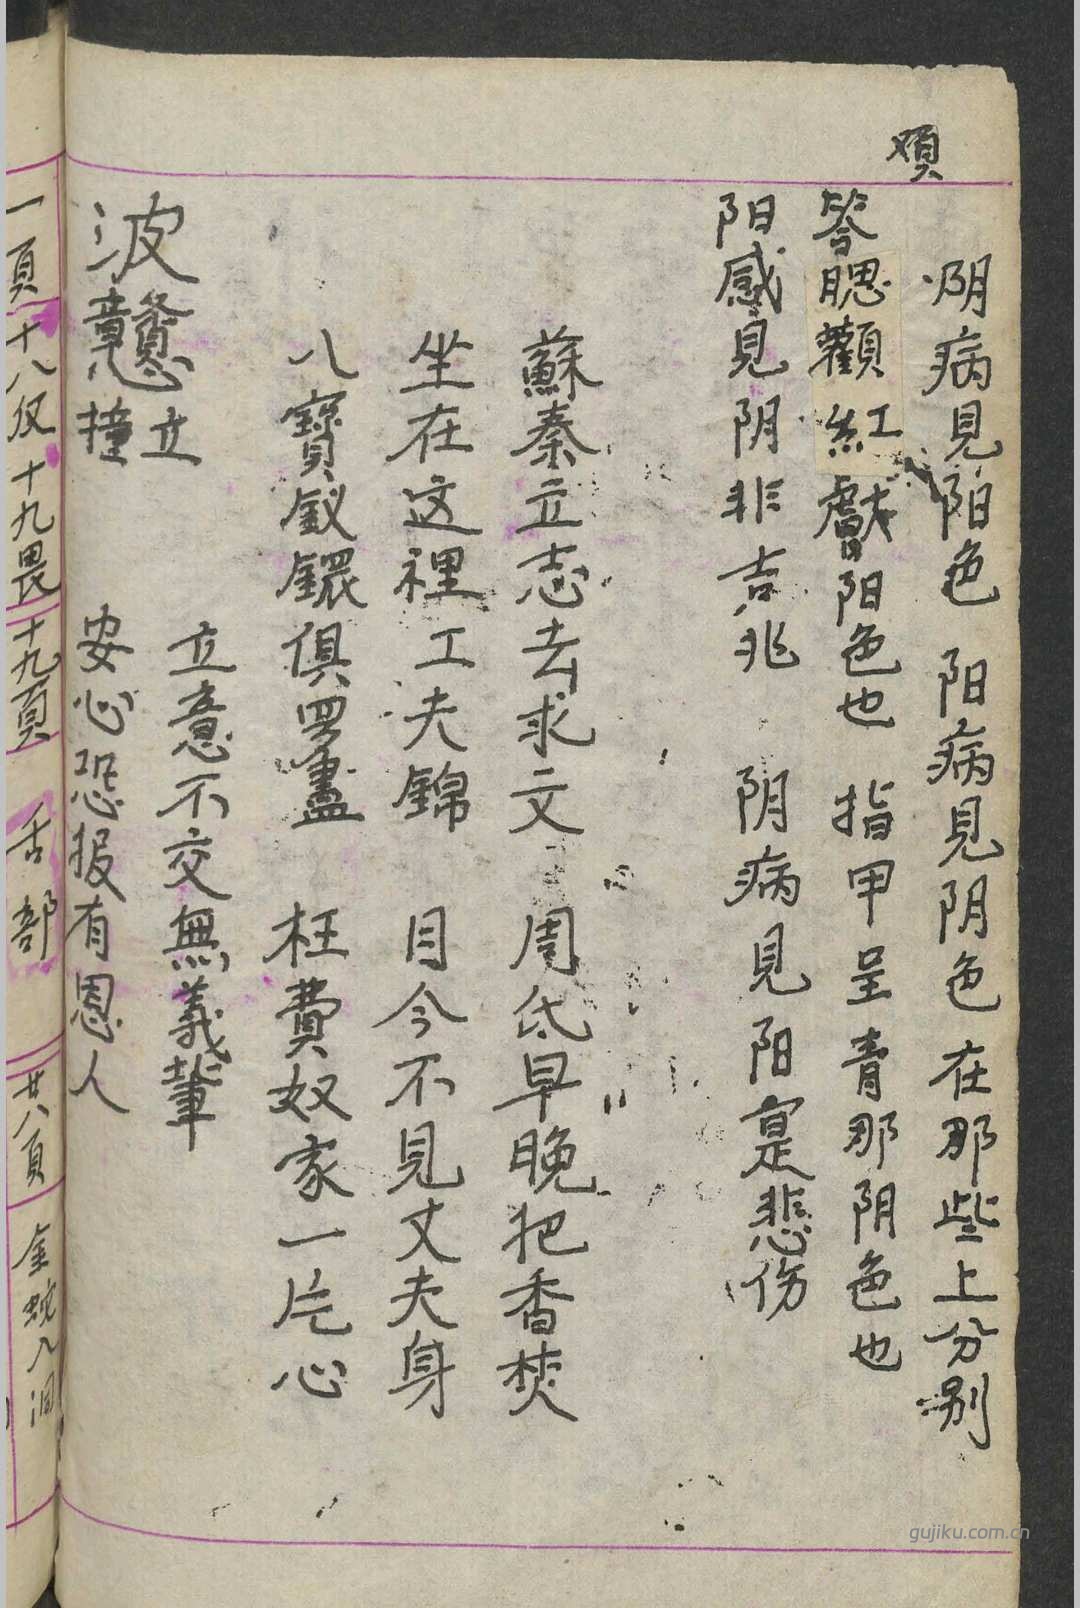 阴病見阳色 阳病見阴色 在那些上分别
答腮顴紅戱阳色也 指甲呈青那阴色也
阳感見阴非吉兆 阴病見阳寔悲伤
蘇秦立志去求文 周氏早晚把香焚
坐在这裡工夫錦 目今不見丈夫身
八寶釵鐶俱罗盡 枉費奴家一片心
立意不交無義輩
安心恐报有恩人
波
立
撞
一頁
十八仅
十九畏
十九頁
舌部
廿八頁
金蛇入洞
gujiku.com.cn